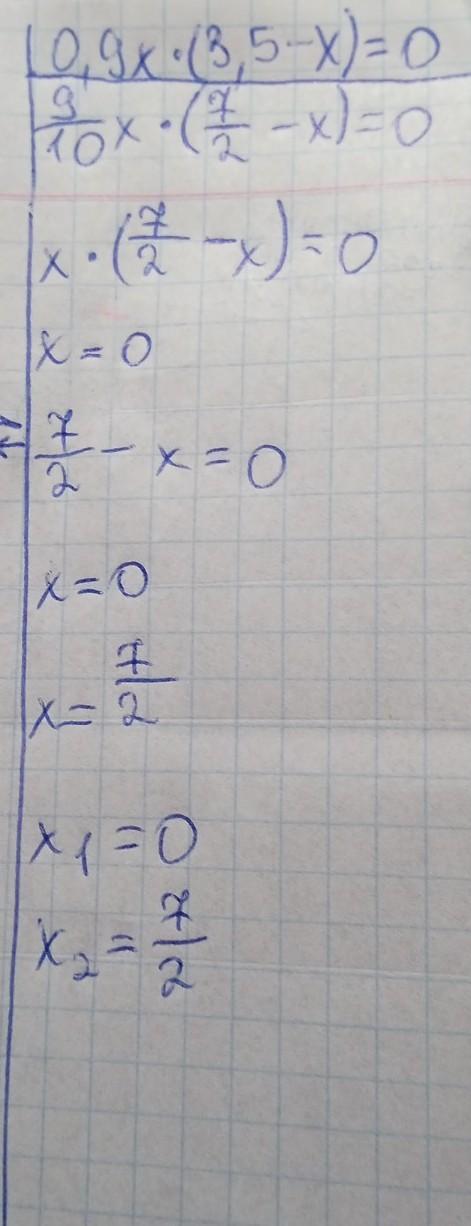 0,9x·(3,5-x)=0
9/10 x·(7/2 -x)=0
x·(7/2 -x)=0
x=0
7/2 - x=0
x=0
x=7/2
x₁=0
x₂=7/2